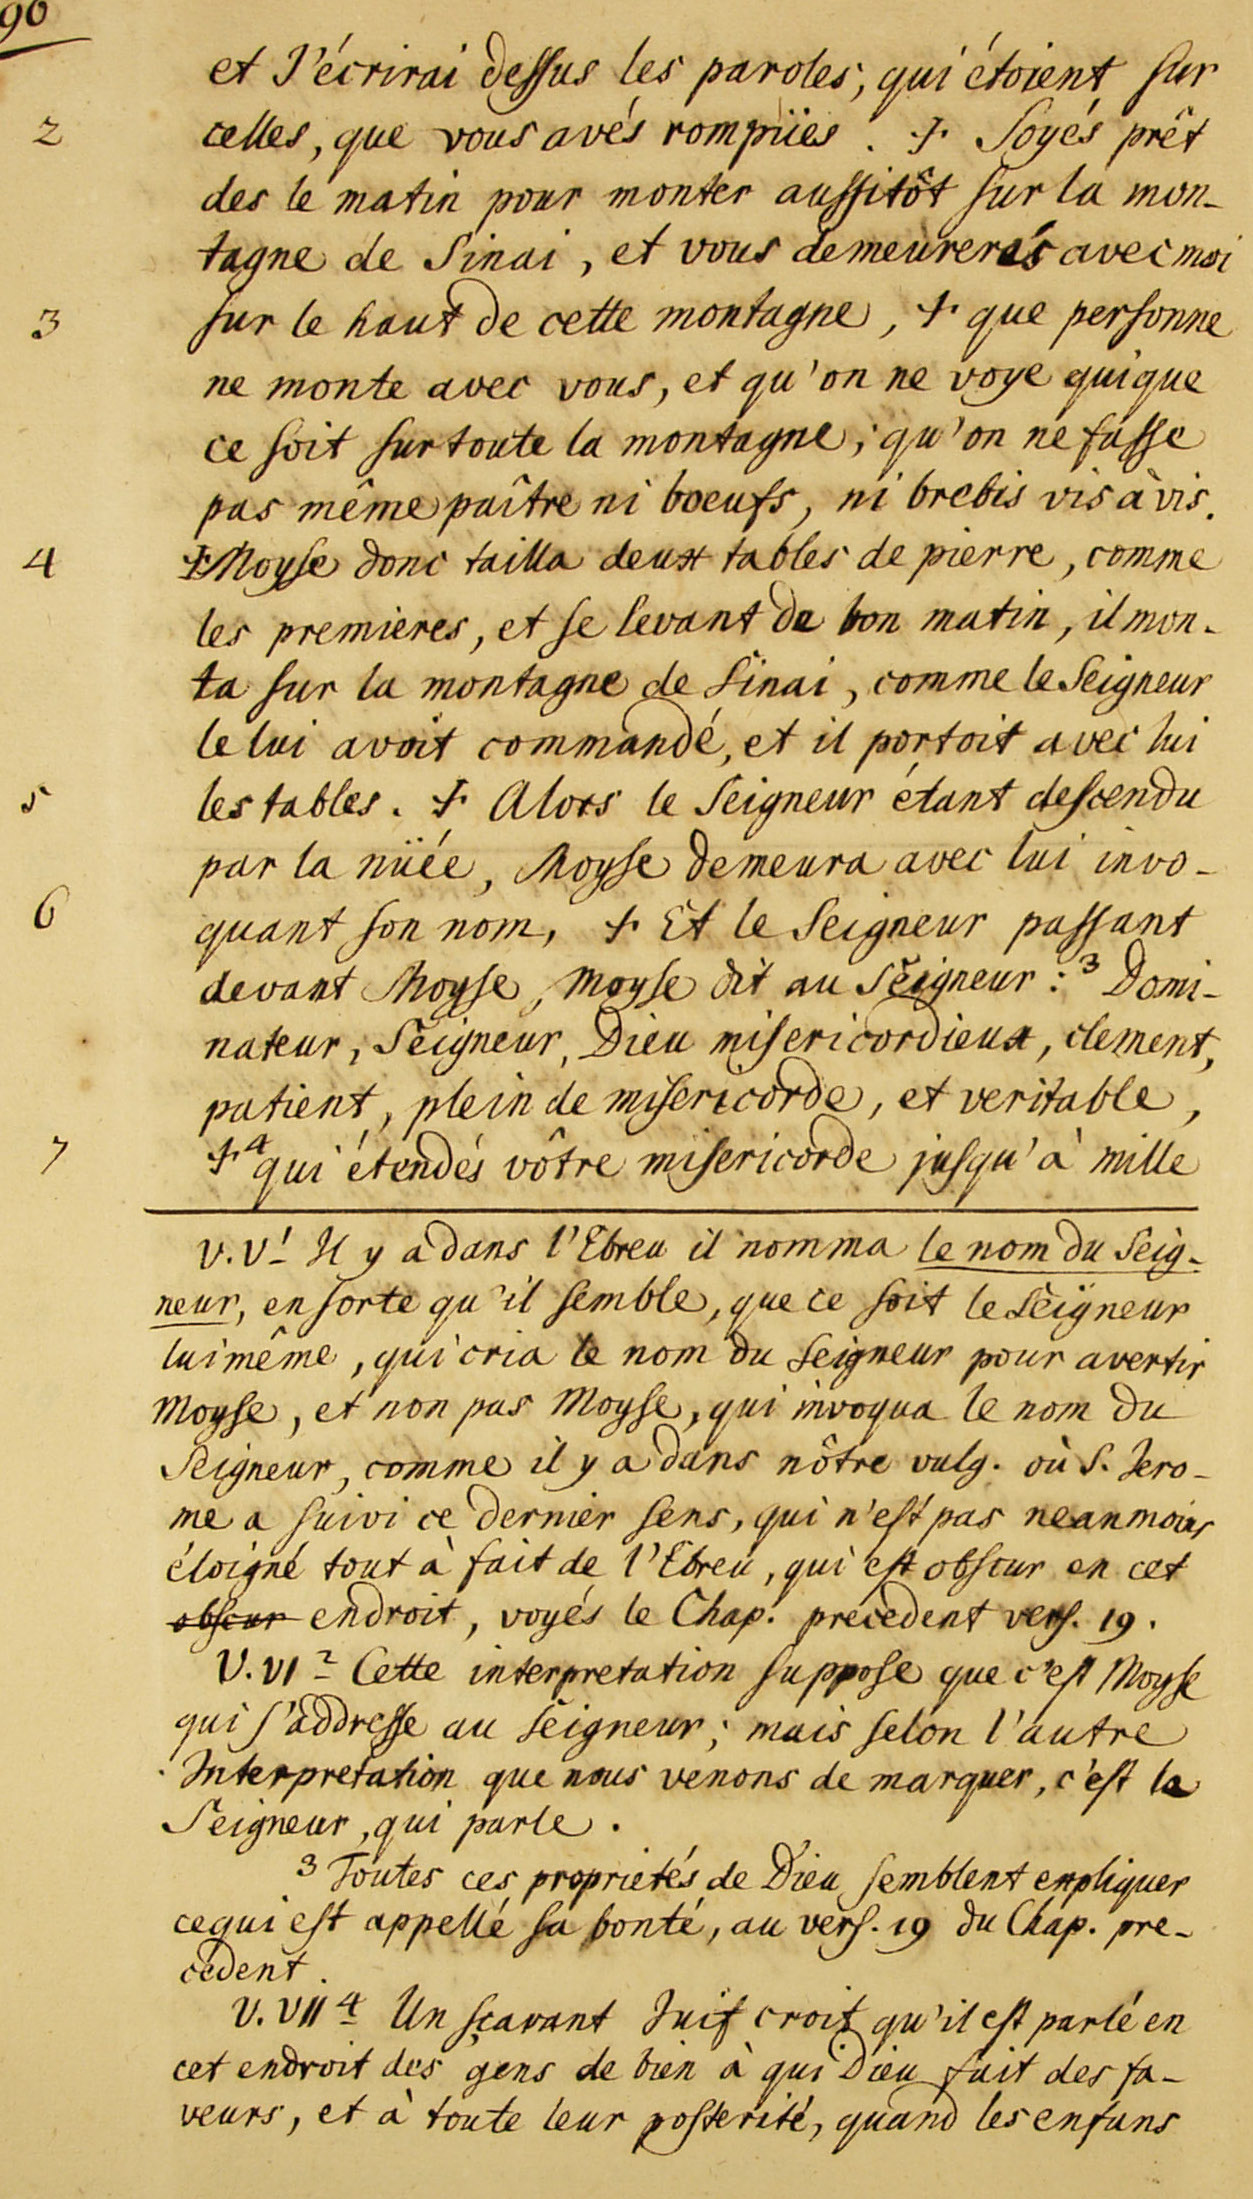 90
et J'écrirai dessus les paroles, qui étoient sur
2 celles, que vous avés rompües. + Soyés prêt
des le matin pour monter aussitôt sur la mon-
tagne de Sinai, et vous demeurerés avec moi
3 sur le haut de cette montagne, + que personne
ne monte avec vous, et qu'on ne voye qui que
ce soit sur toute la montagne; qu'on ne fasse
pas même paître ni boeufs, ni brebis vis à vis.
4 + Moyse donc tailla deux tables de pierre, comme
les premieres, et se levant de bon matin, il mon-
ta sur la montagne de Sinai, comme le Seigneur
le lui avoit commandé, et il portoit avec lui
5 les tables. + Alors le Seigneur étant descendu
par la nüée, Moyse demeura avec lui invo-
6 quant son nom, + Et le Seigneur passant
devant Moyse, Moyse dit au Seigneur: 3 Domi-
nateur, Seigneur, Dieu misericordieux, clement,
patient, plein de misericorde, et veritable,
7 + 4 qui étendés vôtre misericorde jusqu'à mille
V. V 1 Il y a dans l'Ebreu il nomma le nom du Seig-
neur, en sorte qu'il semble, que ce soit le Seigneur
lui même, qui cria le nom du Seigneur pour avertir
Moyse, et non pas Moyse, qui invoqua le nom du
Seigneur, comme il y a dans nôtre vulg. où S. Jero-
me a suivi ce dernier sens, qui n'est pas neanmoins
éloigné tout à fait de l'Ebreu, qui est obscur en cet
obscur endroit, voyés le Chap. precedent vers. 19.
V. VI 2 Cette interpretation suppose que c'est Moyse
qui s'addresse au Seigneur; mais selon l'autre
Interpretation que nous venons de marquer, c'est le
Seigneur, qui parle.
3 Toutes ces proprietés de Dieu semblent expliquer
ce qui est appellé sa bonté, au vers. 19 du Chap. pre-
cedent.
V. VII 4 Un sçavant Juif croit qu'il est parlé en
cet endroit des gens de bien à qui Dieu fait des fa-
veurs, et à toute leur posterité, quand les enfans